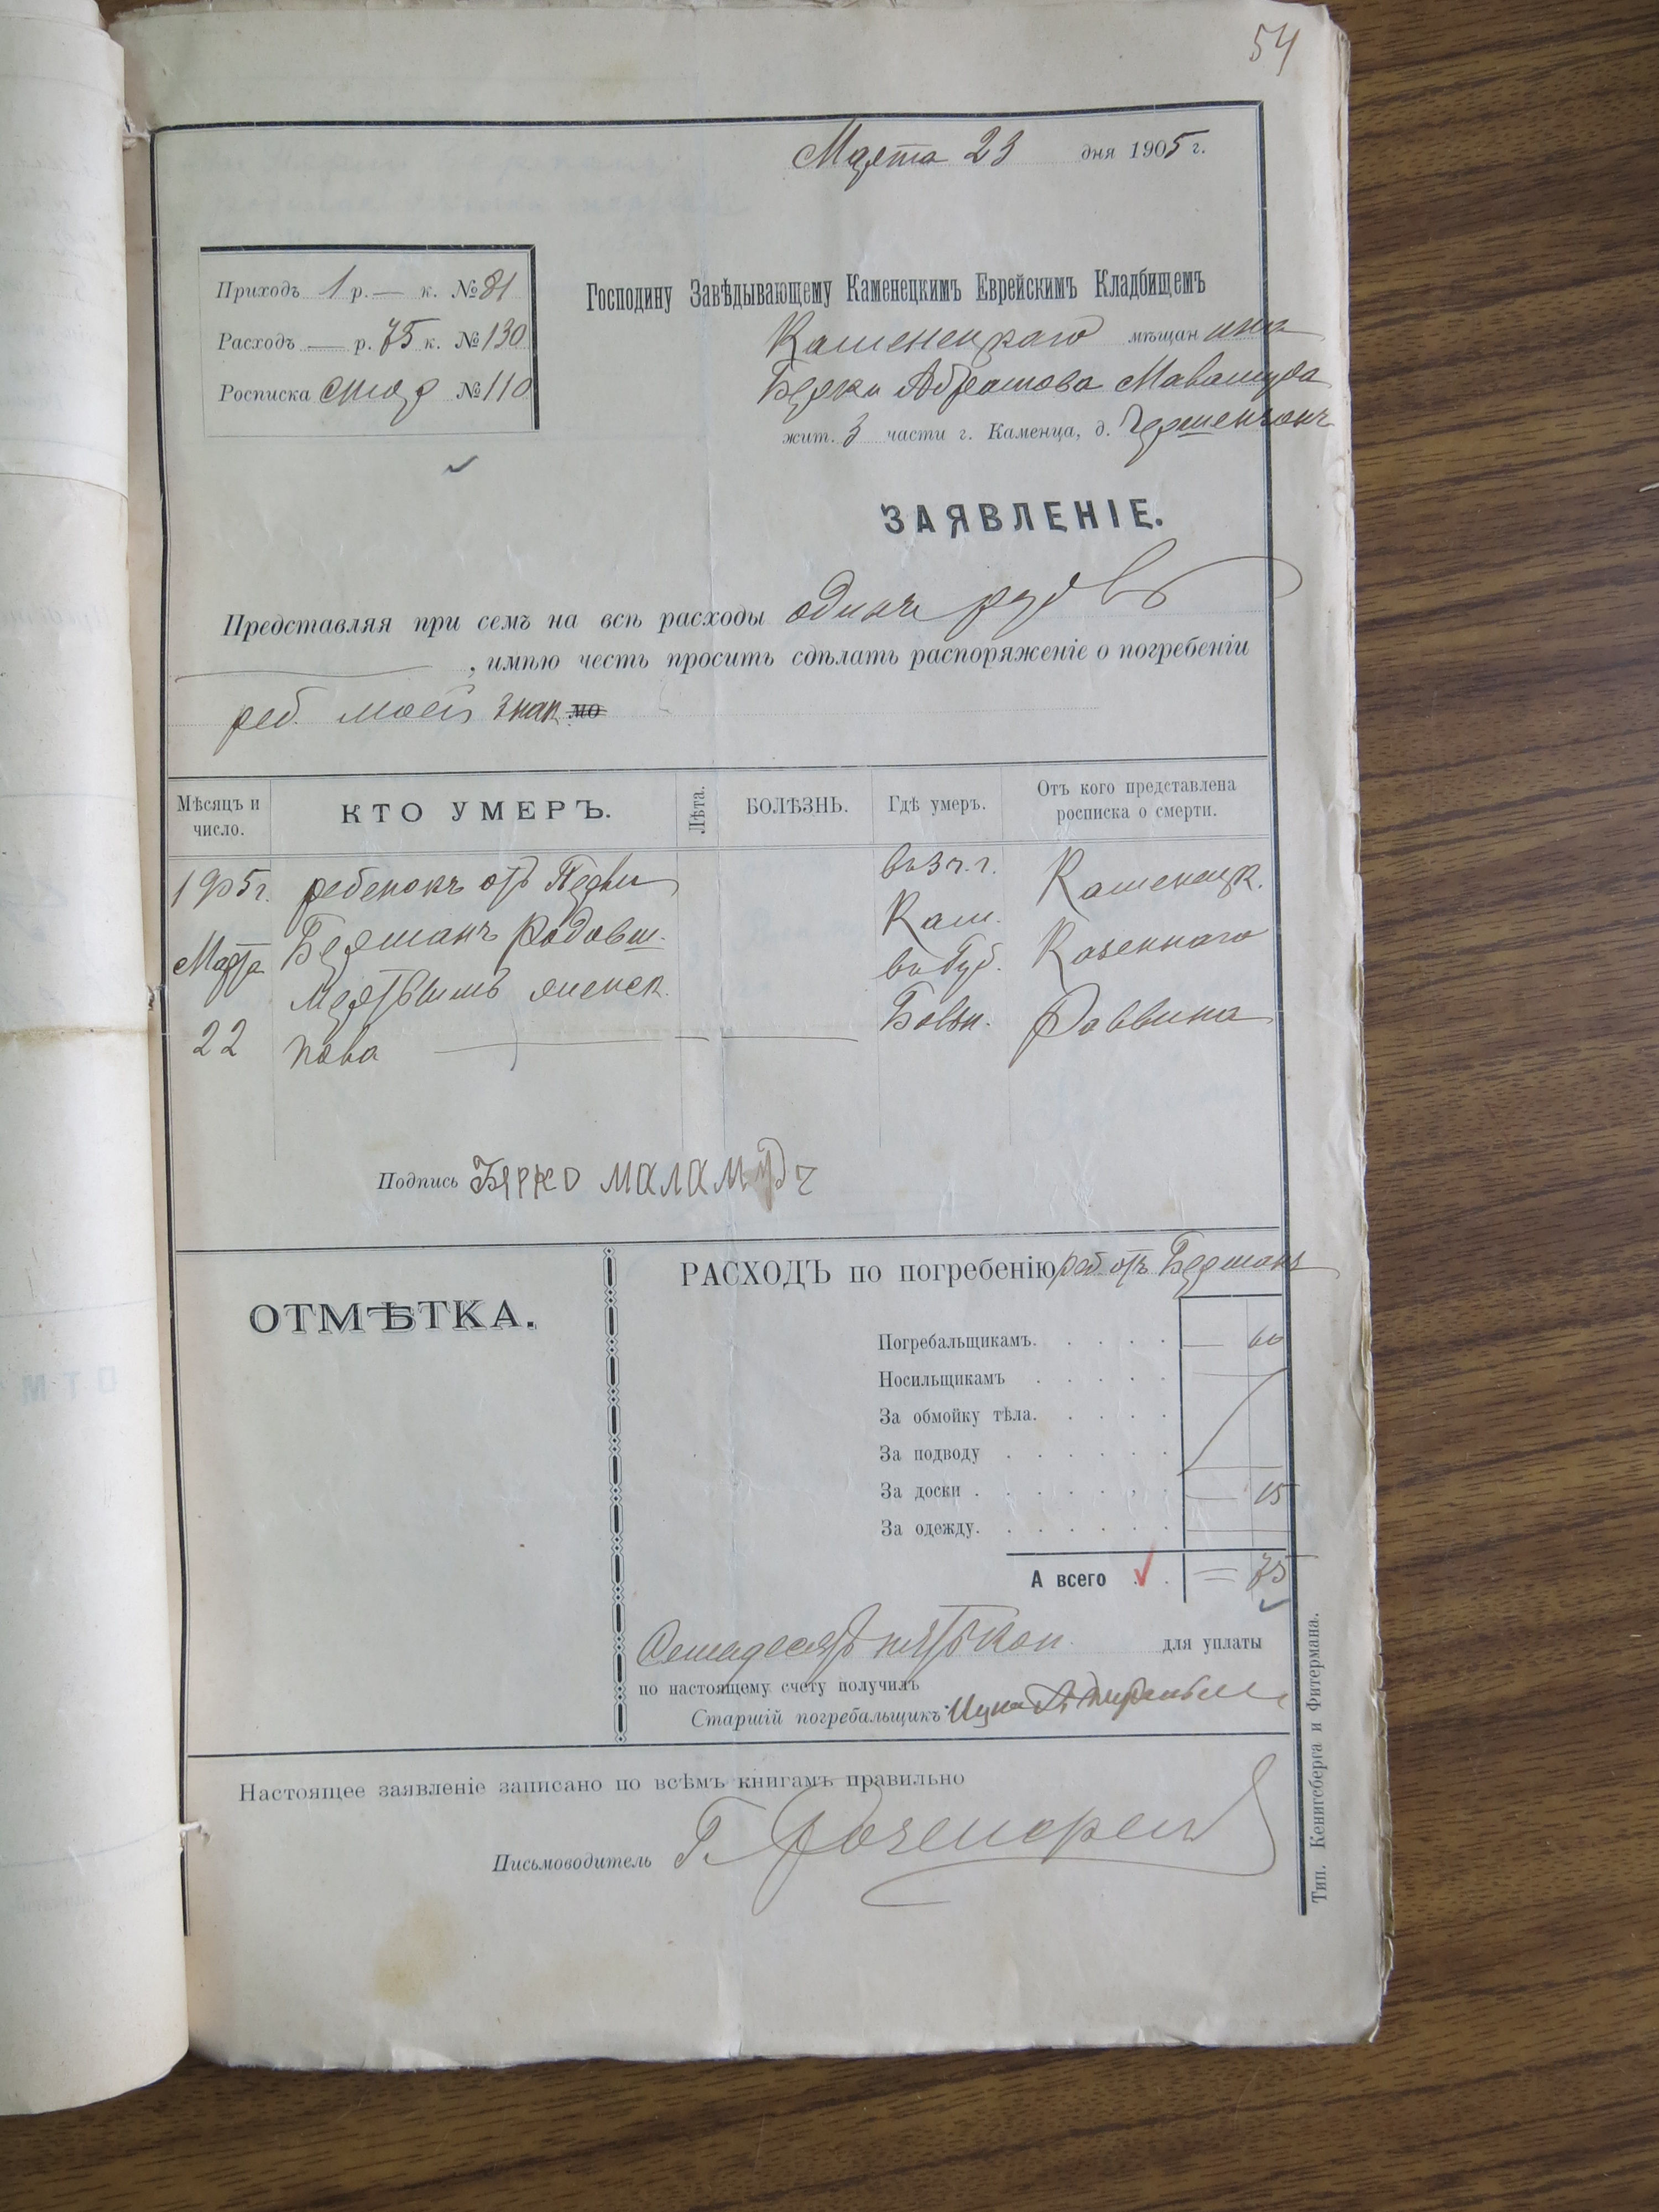 54
Марта 23 дня 1905 г.
Приходъ 1 р. — к. № 81
Расходъ — р. 75 к. № 130
Росписка № 110
Господину Завѣдывающему Каменецкимъ Еврейскимъ Кладбищемъ
Каменецкаго мѣщанина
Берка Абрамова Маламуда
жит. 3 части г. Каменца, д.
ЗАЯВЛЕНІЕ.
Представляя при семъ на всѣ расходы одинъ руб
, имѣю честь просить сдѣлать распоряженіе о погребеніи
реб. моей знак. мо
Мѣсяцъ и число.
КТО УМЕРЪ.
Лѣта.
БОЛѢЗНЬ.
Гдѣ умеръ.
Отъ кого представлена росписка о смерти.
1905 г. ребенокъ отъ въ 3 ч. г. Каменецк.
Марта Берманъ родовш. Кам. Казеннаго
22 мертвымъ женск. въ Губ. Раввина
пола Больн.
Подпись Бярко маламудъ
ОТМѢТКА.
РАСХОДЪ по погребенію реб. отъ Берманъ
Погребальщикамъ. — 60
Носильщикамъ
За обмойку тѣла.
За подводу
За доски — 15
За одежду.
А всего — 75
Семьдесятъ пять коп. для уплаты
по настоящему счету получилъ
Старшій погребальщикъ
Настоящее заявленіе записано по всѣмъ книгамъ правильно
Письмоводитель Г.
Тип. Кенигсберга и Фитермана.